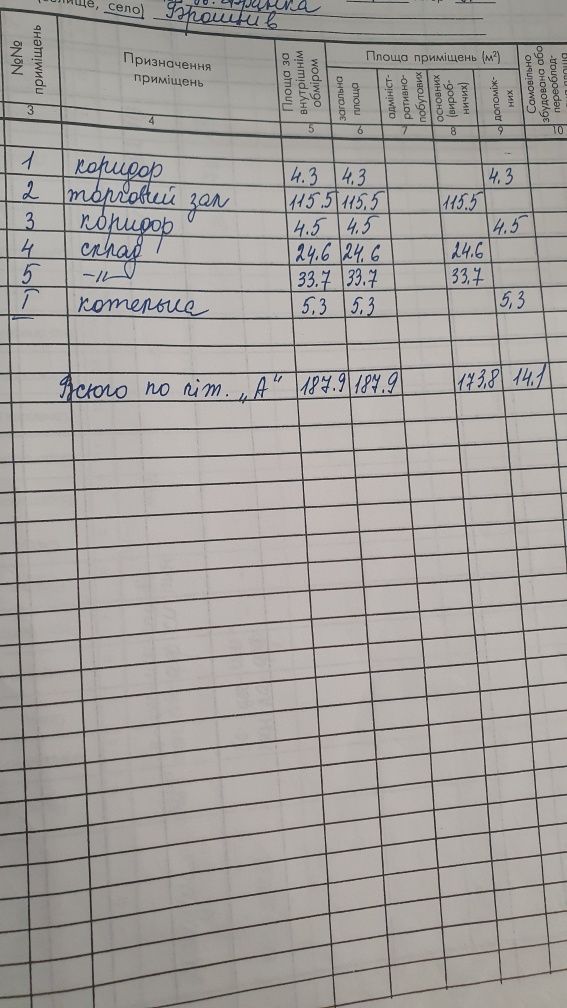 село) Брошнів
№№ приміщень | Призначення приміщень | Площа за внутрішнім обміром | Площа приміщень (м²)
загальна площа | адміністративно-побутових | основних (виробничих) | допоміжних | Самовільно збудована або
3 4 5 6 7 8 9 10
1 коридор 4.3 4.3 4.3
2 торговий зал 115.5 115.5 115.5
3 коридор 4.5 4.5 4.5
4 склад 24.6 24.6 24.6
5 -"- 33.7 33.7 33.7
I котельна 5,3 5,3 5,3
Всього по літ. „А" 187.9 187.9 173,8 14.1